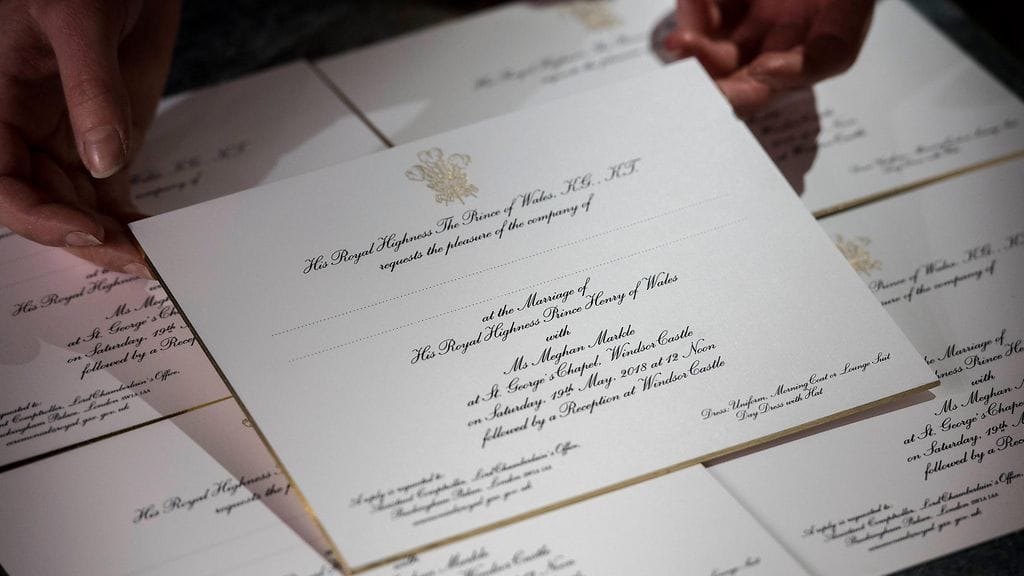 His Royal Highness The Prince of Wales, K.G., K.T.
requests the pleasure of the company of
at the Marriage of
His Royal Highness Prince Henry of Wales
with
Ms Meghan Markle
at St. George's Chapel, Windsor Castle
on Saturday, 19th May, 2018 at 12 Noon
followed by a Reception at Windsor Castle
Dress: Uniform, Morning Coat or Lounge Suit
Day Dress with Hat
A reply is requested to:
Lord Chamberlain's Office,
Buckingham Palace, London
K.G., K.T.
company of
His Royal High
at the
Ms Meg
at St. George's Cha
on Saturday, 19th
followed by a Recep
Lord Chamberlain's Office,
Buckingham Palace, London
His Royal Highness
requests the p
Prince of Wales, K.G., K
of the company of
Marriage of
Prince He
with
Ms Meghan
at St. George's Chape
on Saturday, 19th
followed by a Re
A reply is requested to:
Lord Chamberlain's Office,
Buckingham Palace, London
Markle
Windsor Castle